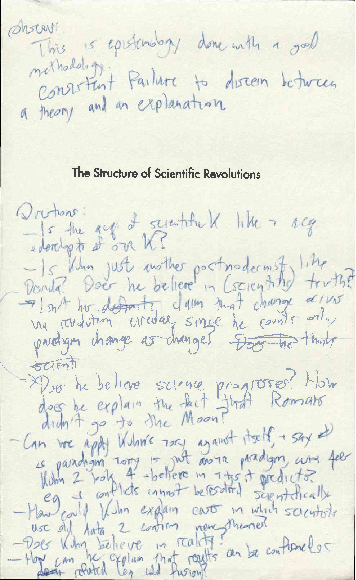 This is epistemology done with a good
methodology.
Consistent failure to discern between
a theory and an explanation
The Structure of Scientific Revolutions
Questions:
- Is the acq of scientific K like
of our K?
- Is Kuhn just another postmodernist like
Derrida? Does he believe in (scientific) truth?
- Isn't his claim that change occurs
via revolution circular, since he counts only
paradigm change as change?
Does he believe science progresses? How
does he explain the fact that Romans
didn't go to the Moon?
- Can we apply Kuhn's against itself, + say
is paradigm is just paradigm,
Kuhn 2 look 4 + believe in it predicts?
eg conflicts cannot be resolved scientifically
- How could Kuhn explain cases in which scientists
use old data 2 confirm new theories?
- Does Kuhn believe in reality?
- How can he explain that results can be confirmed or
related (eg cold fusion)